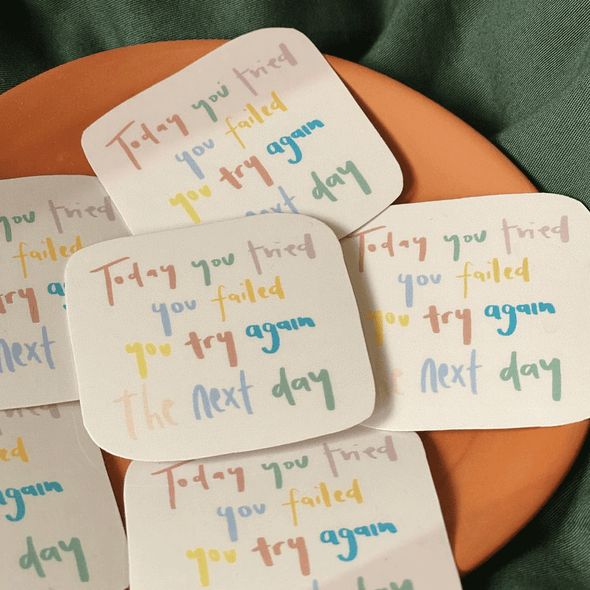 Today you tried
you failed
you try again
next day
you tried
failed
try
next
Today you tried
you failed
you try again
the next day
Today you tried
you failed
you try again
next day
tried
again
day
Today you tried
you failed
you try again
next day